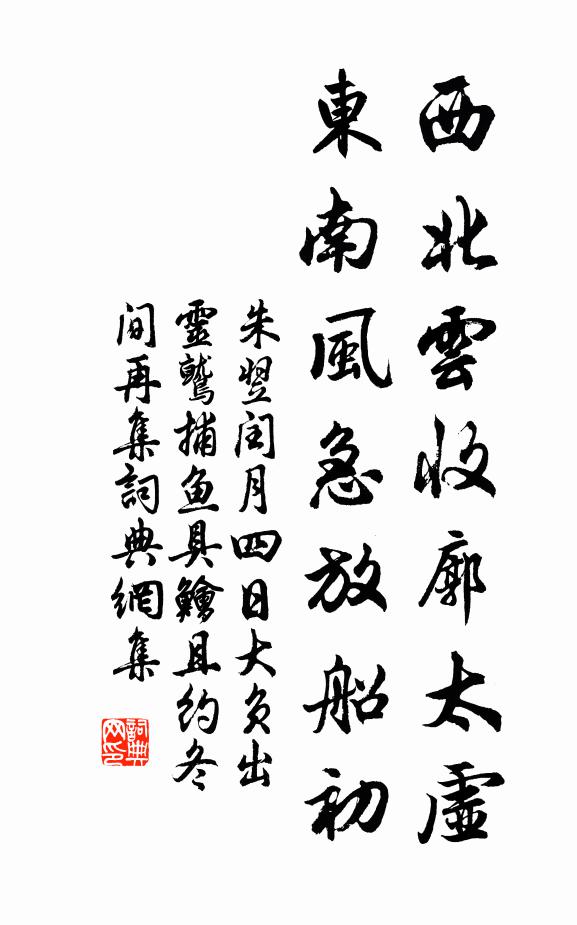 西北雲收廓太虛
東南風急放船初
朱翌閏月四日大負出
靈鷲捕魚具鱠且約冬
間再集詞典網集
詞典網印